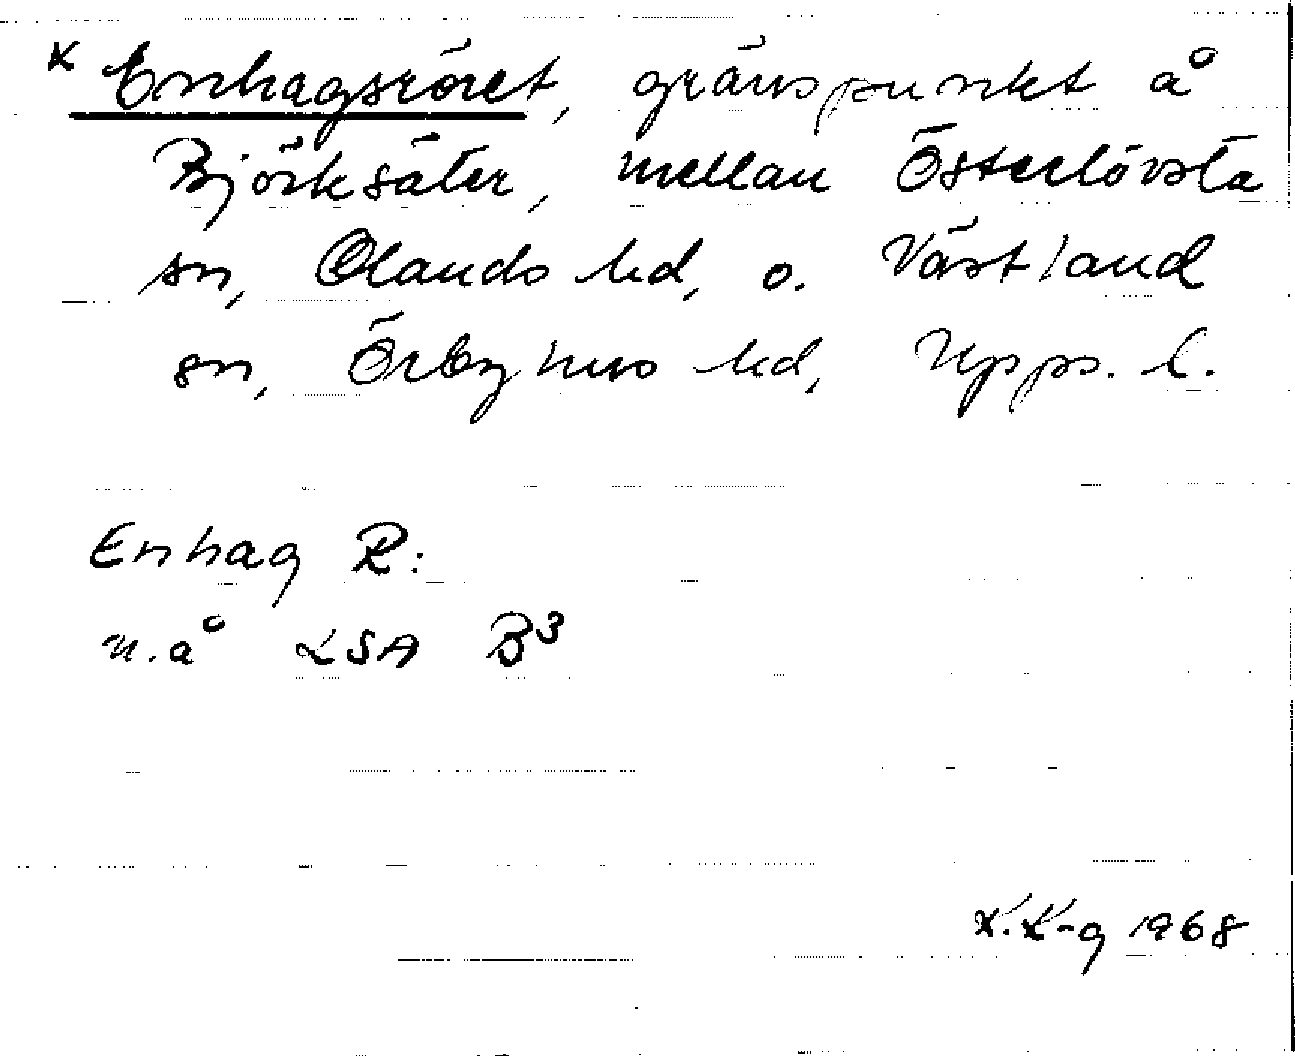 x Enhagsröret, gränspunkt å
Björksäter, mellan Österlövsta
sn, Olands hd, o. Västland
sn, Örbyhus hd, Upps. l.
Enhag R:
u.å LSA B3
K. K-g 1968